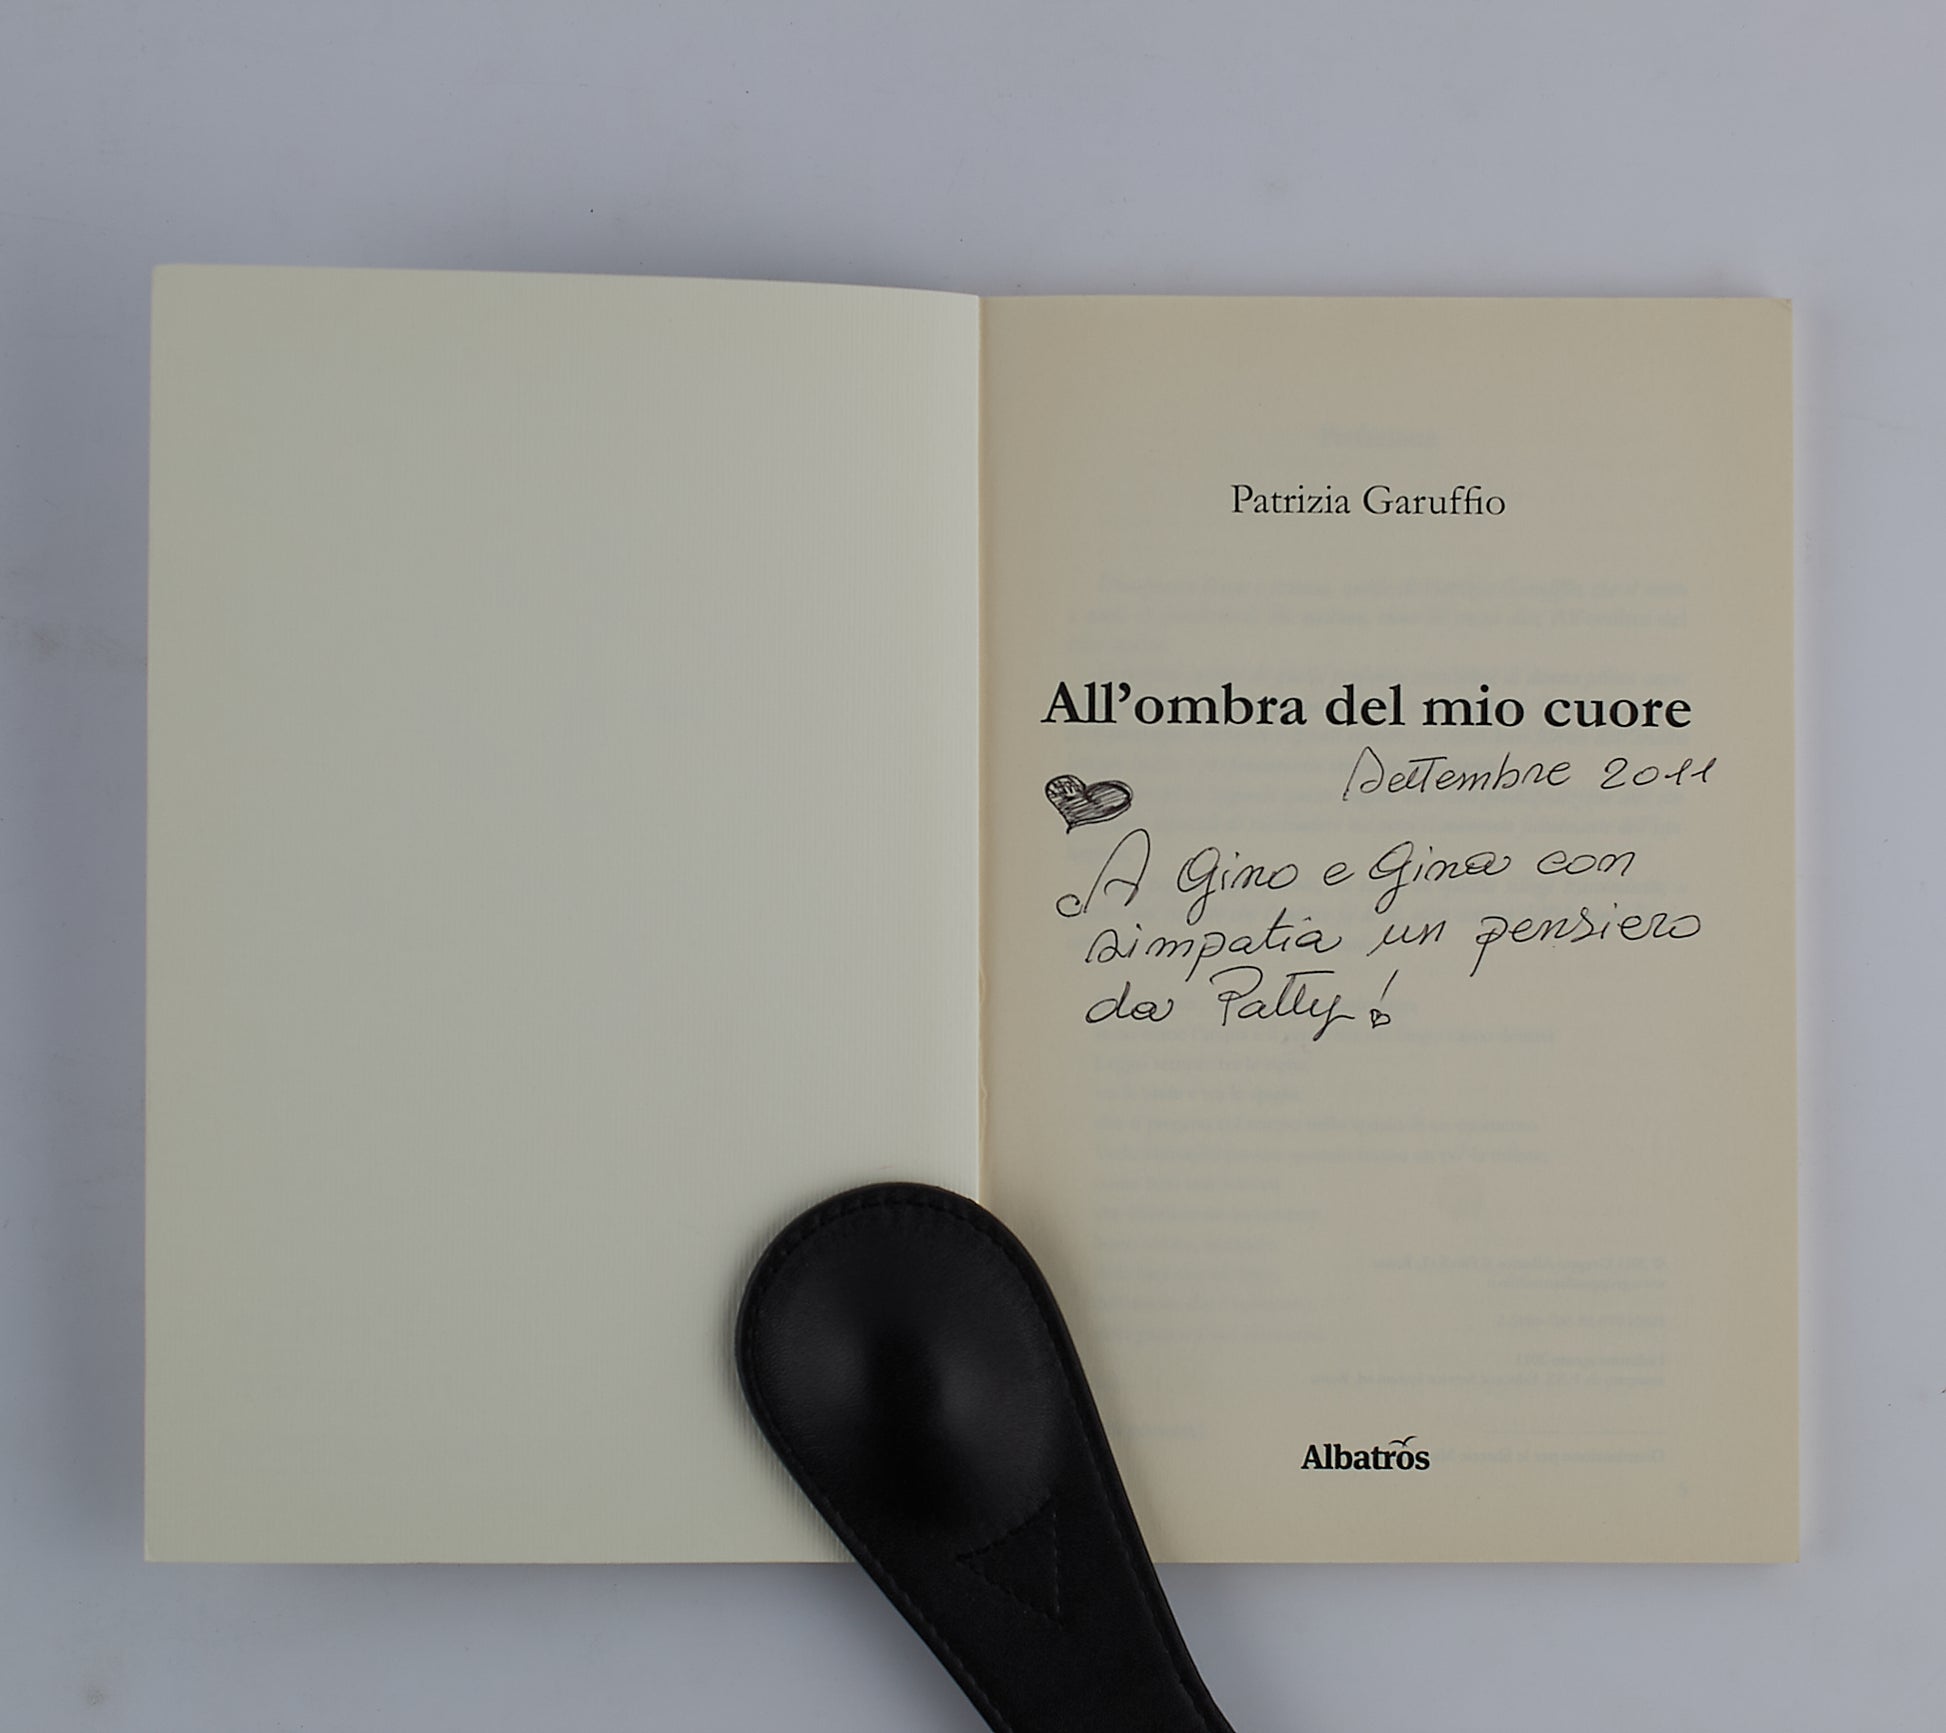 Patrizia Garuffio
All'ombra del mio cuore
Settembre 2011
A Gino e Gina con
simpatia un pensiero
da Patty!
Albatros